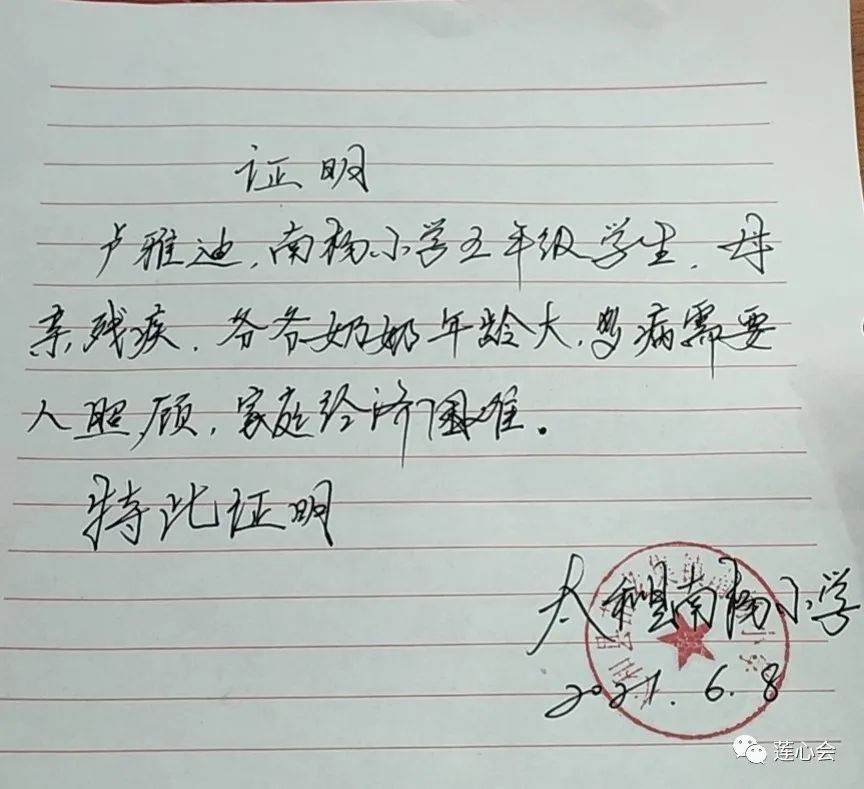 证明
卢雅迪,南杨小学五年级学生,母
亲残疾,爷爷奶奶年龄大,多病需要
人照顾,家庭经济困难。
特此证明
太和县南杨小学
2021.6.8
莲心会